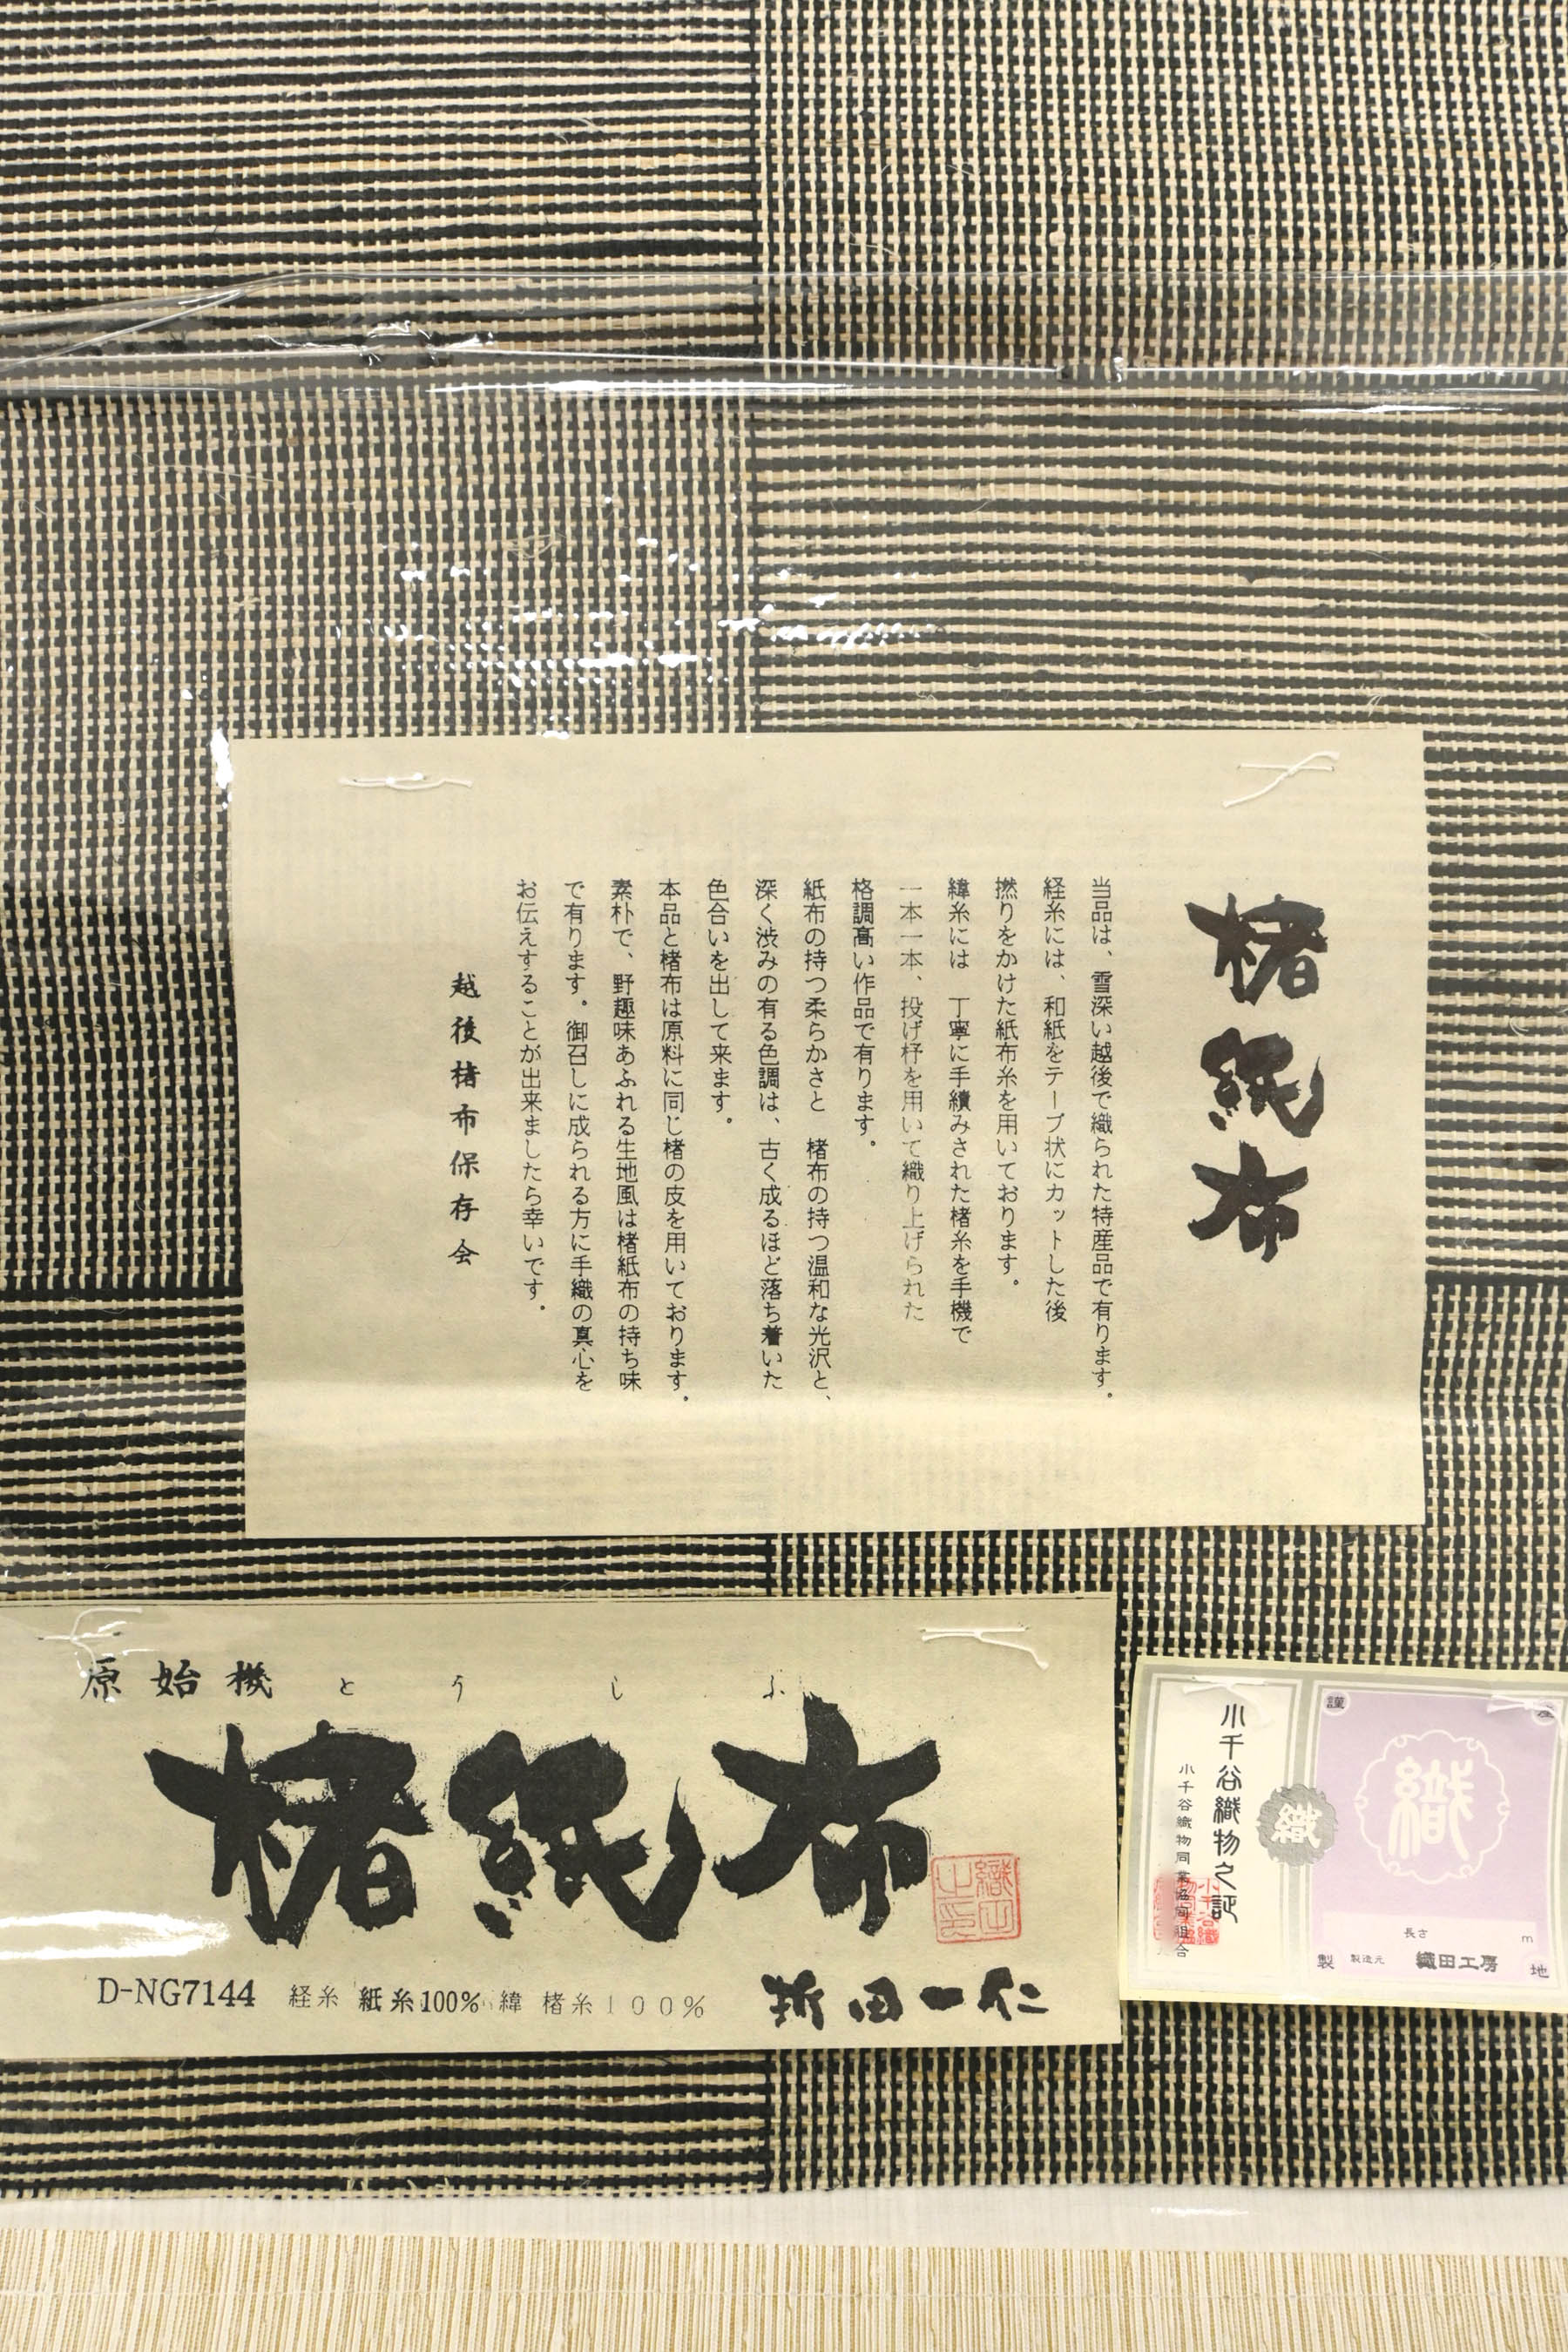 楮紙布
当品は、雪深い越後で織られた特産品で有ります。
経糸には、和紙をテープ状にカットした後
撚りをかけた紙布糸を用いております。
緯糸には 丁寧に手績みされた楮糸を手機で
一本一本、投げ杼を用いて織り上げられた
格調高い作品で有ります。
紙布の持つ柔らかさと 楮布の持つ温和な光沢と、
深く渋みの有る色調は、古く成るほど落ち着いた
色合いを出して来ます。
本品と楮布は原料に同じ楮の皮を用いております。
素朴で、野趣味あふれる生地風は楮紙布の持ち味
で有ります。御召しに成られる方に手織の真心を
お伝えすることが出来ましたら幸いです。
越後楮布保存会
原始機 とうしふ
楮紙布
D-NG7144 経糸 紙糸100% 緯 楮糸100%
織田一仁
小千谷織物之証
小千谷織物同業協同組合
織
謹
織
長さ m
製 製造元 織田工房 地